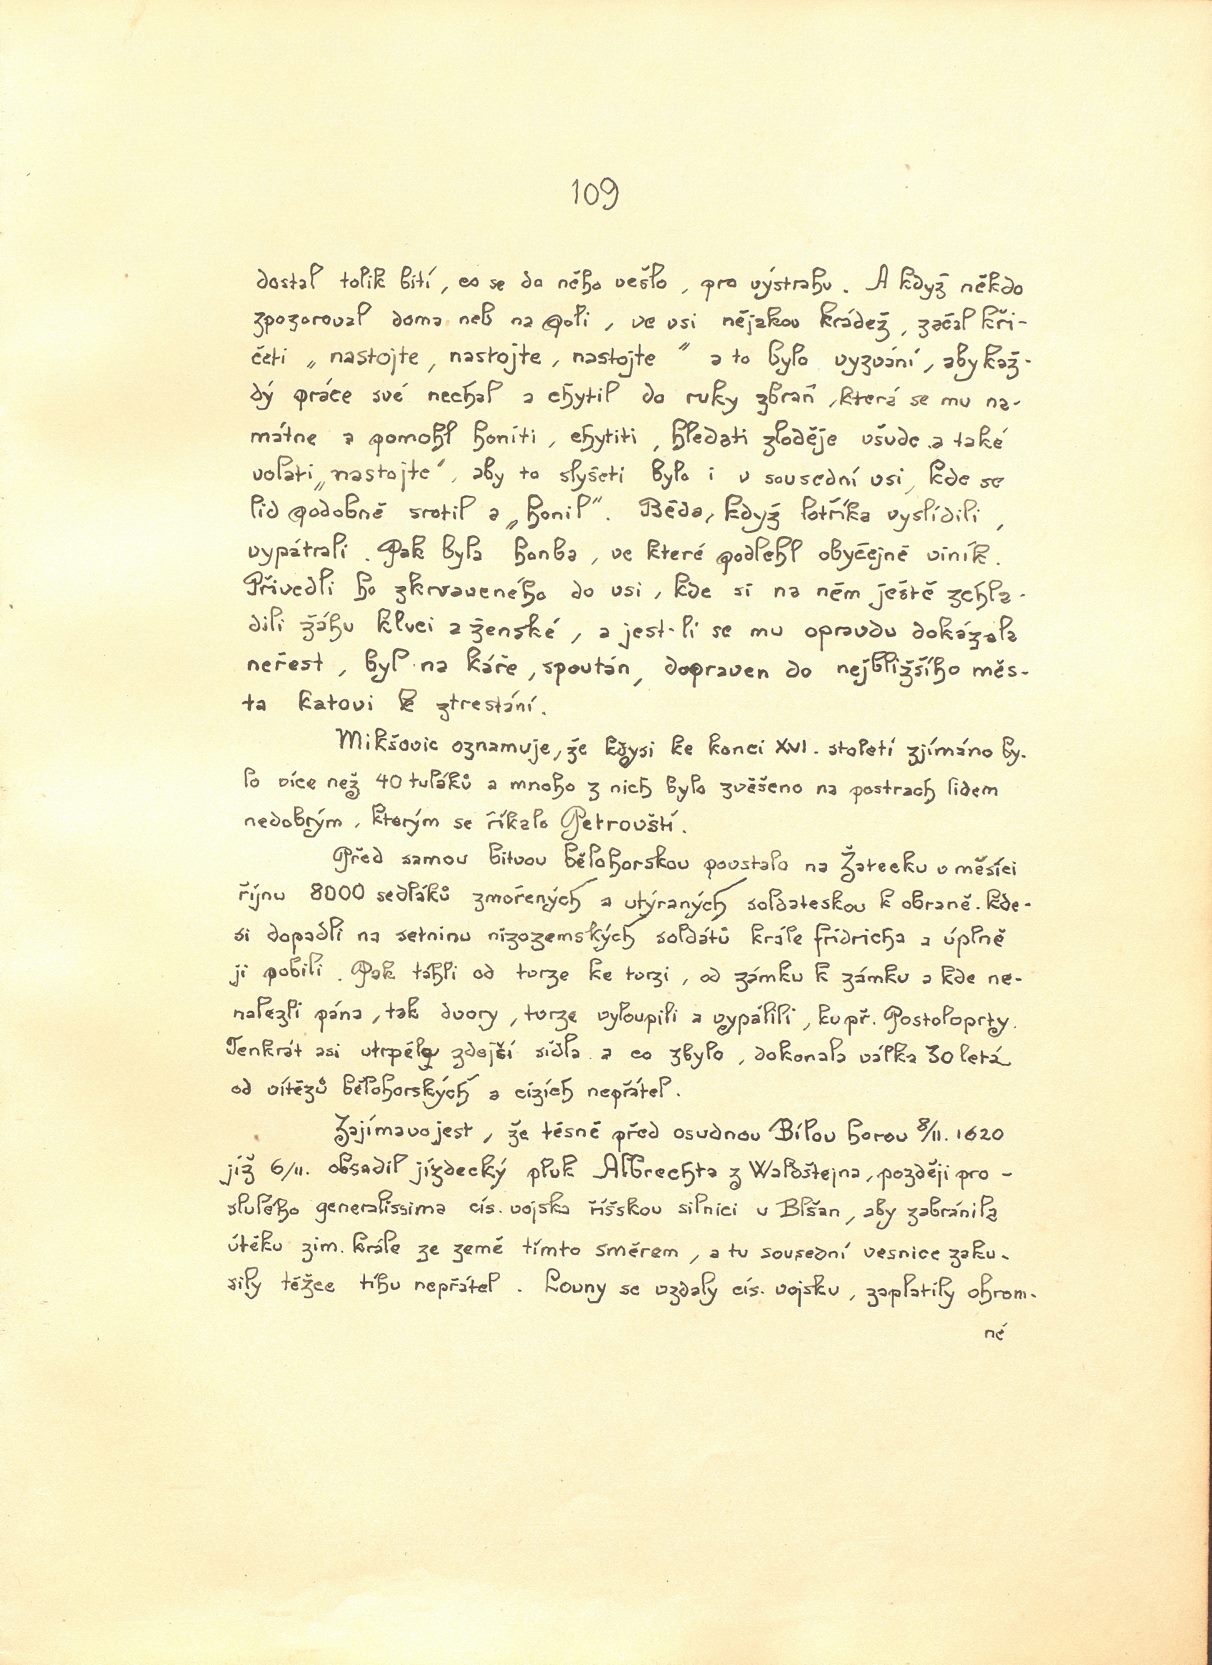 109
dostal tolik bití, co se do něho vešlo, pro výstrahu. A když někdo
zpozoroval doma neb na poli, ve vsi nějakou krádež, začal kři-
četi „nastojte, nastojte, nastojte" a to bylo vyzvání, aby kaž-
dý práce své nechal a chytil do ruky zbraň, která se mu na-
mátne a pomohl honiti, chytiti, hledati zloděje všude a také
volati „nastojte", aby to slyšeti bylo i v sousední vsi, kde se
lid podobně srotil a „honil". Běda, když lotříka vyslídili,
vypátrali. Pak byla honba, ve které podlehl obyčejně viník.
Přivedli ho zkrvaveného do vsi, kde si na něm ještě zchla-
dili žáhu kluci a ženské, a jest-li se mu opravdu dokázala
neřest, byl na káře, spoután, dopraven do nejbližšího měs-
ta katovi k ztrestání.
Mikšovic oznamuje, že kdysi ke konci XVI. století zjímáno by-
lo více než 40 tuláků a mnoho z nich bylo zvěšeno na postrach lidem
nedobrým, kterým se říkalo Petrovští.
Před samou bitvou bělohorskou povstalo na Žatecku v měsíci
říjnu 8000 sedláků zmořených a utýraných soldateskou k obraně. Kde-
si dopadli na setninu nizozemských soldátů krále fridricha a úplně
ji pobili. Pak táhli od tvrze ke tvrzi, od zámku k zámku a kde ne-
nalezli pána, tak dvory, tvrze vyloupili a vypálili, ku př. Postoloprty.
Tenkrát asi utrpěly zdejší sídla a co zbylo, dokonala válka 30letá
od vítězů bělohorských a cizích nepřátel.
Zajímavo jest, že těsně před osudnou Bílou horou 8/11. 1620
již 6/11. obsadil jízdecký pluk Albrechta z Waldštejna, později pro-
slulého generalissima cís. vojska říšskou silnici u Blšan, aby zabránila
útěku zim. krále ze země tímto směrem, a tu sousední vesnice zaku-
sily těžce tíhu nepřátel. Louny se vzdaly cís. vojsku, zaplatily ohrom-
né